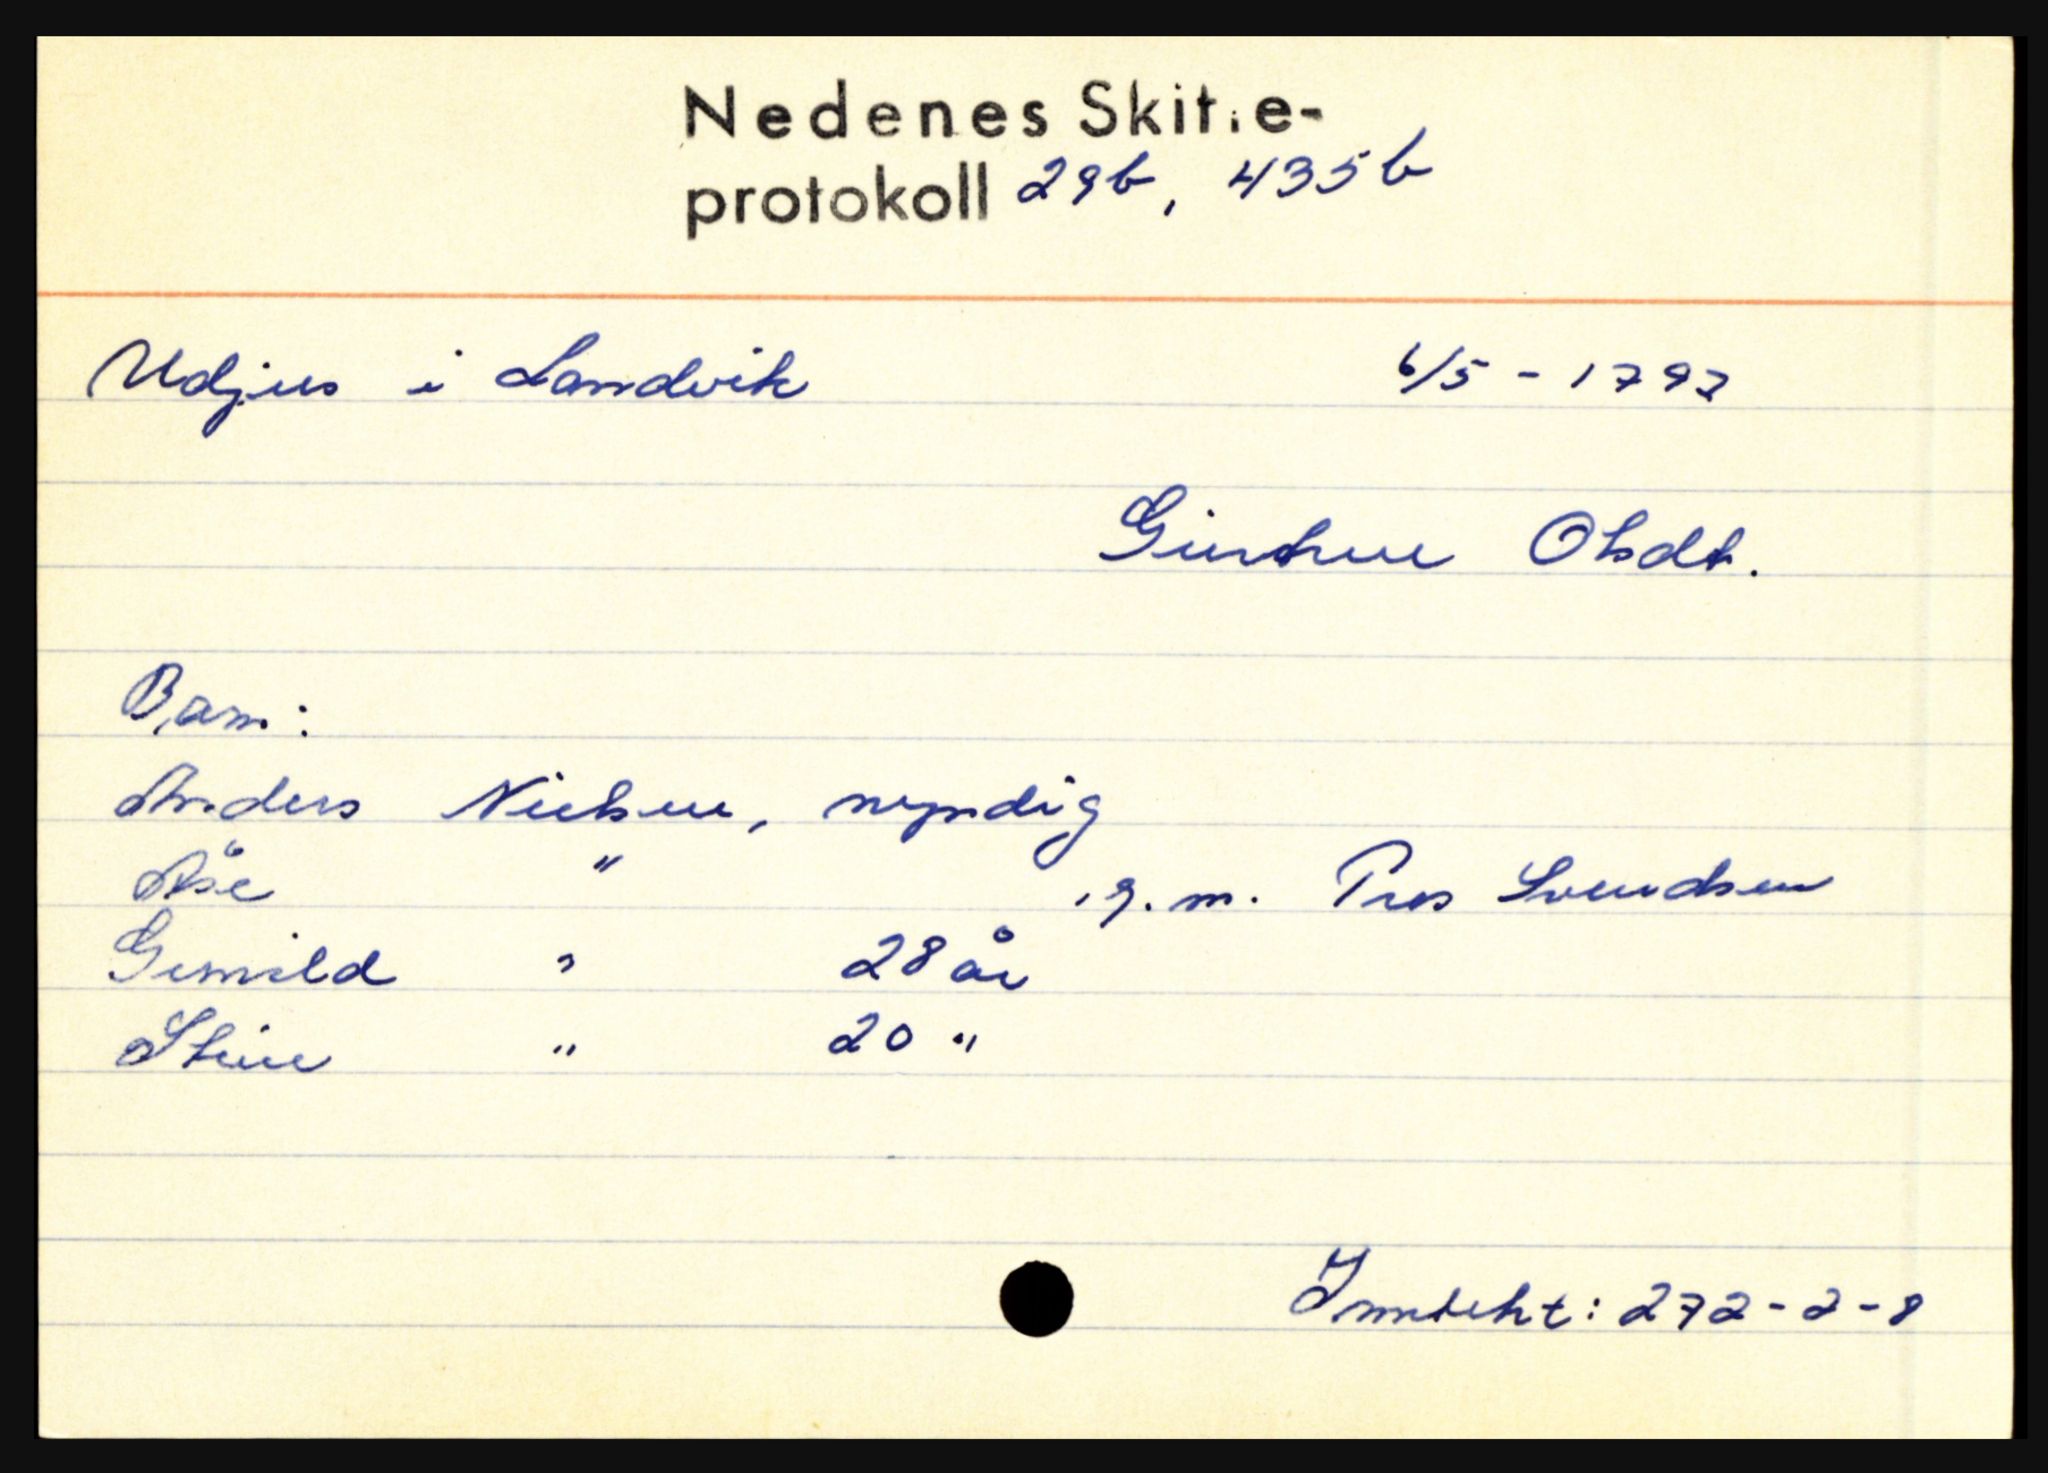 Nedenes Skifte-
protokoll 29b, 435b
Udjus i Landvik 6/5 - 1797
Olsdt.
Barn:
Anders Nielsen, myndig
Åse " , g. m. Tros Svendsen
Gunild " 28 år
Stine " 20 "
Inntekt: 272-2-8